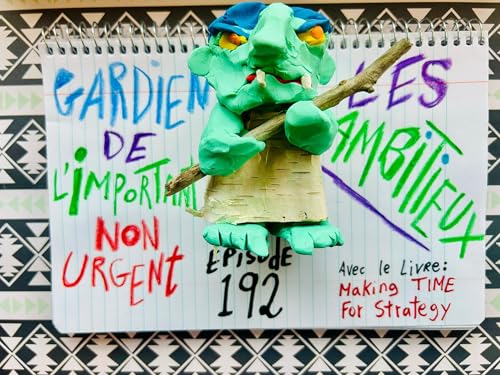 GARDIEN
DE
L'IMPORTANT
NON
URGENT
LES
AMBITIEUX
ÉPISODE
192
AVEC le LIVRE:
MAKING TIME
FOR STRATEGY